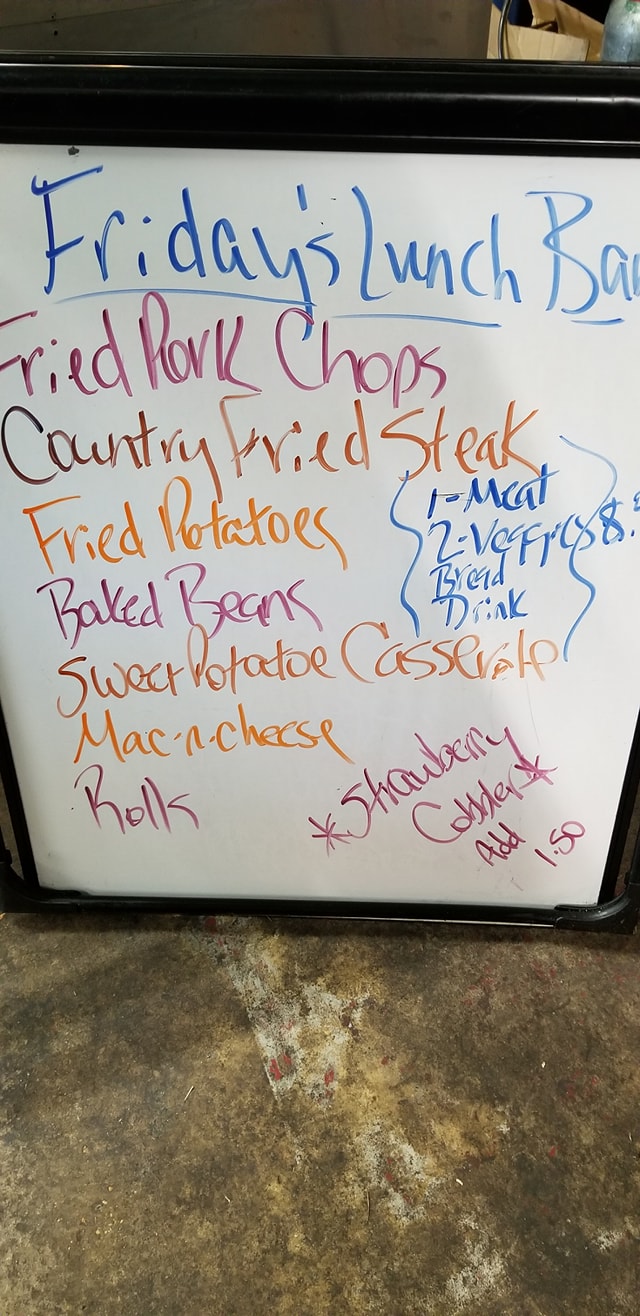 Friday's Lunch Bar
Fried Pork Chops
Country Fried Steak
Fried Potatoes
Baked Beans
Sweet Potatoe Casserole
Mac-n-cheese
Rolls
1-Meat
2-Veggies 8.
Bread
Drink
*Strawberry
Cobbler*
Add 1.50